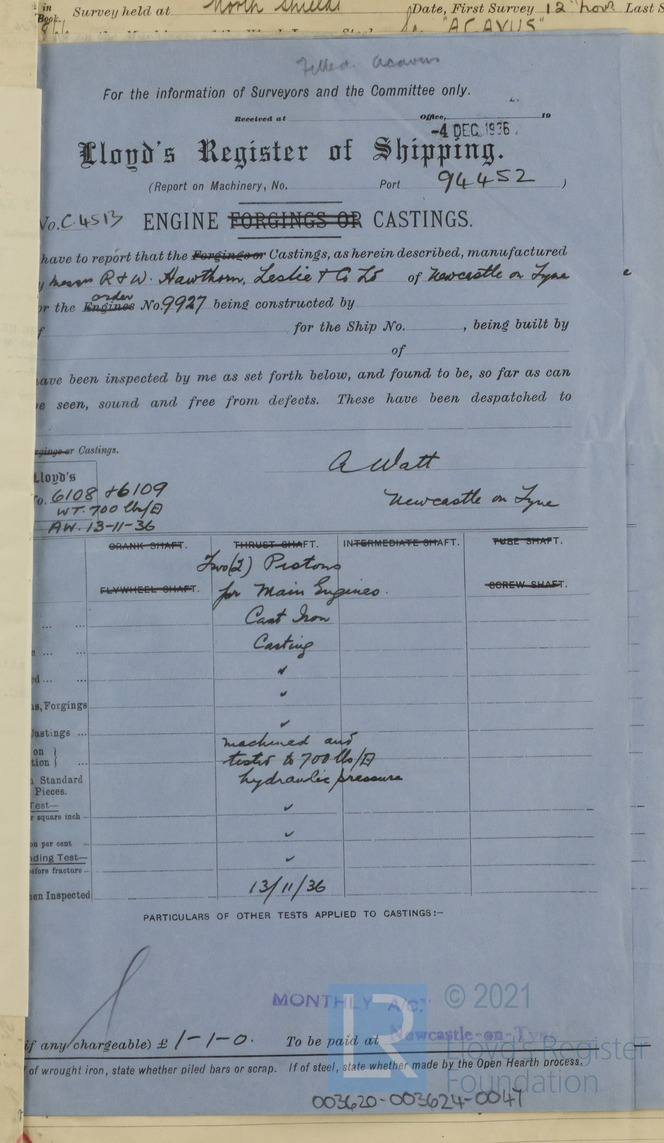 in Survey held at North Shields Date, First Survey 12 Novr Last S
Book.
"ACAVUS"
Acavus
For the information of Surveyors and the Committee only.
Received at Office, 19
-4 DEC 1936
Lloyd's Register of Shipping.
(Report on Machinery, No. Port 94452 )
No. C4513 ENGINE FORGINGS OR CASTINGS.
have to report that the Forgings or Castings, as herein described, manufactured
y Messrs R & W. Hawthorn, Leslie & Co Ld of Newcastle on Tyne
order
or the Engines No. 9927 being constructed by
f for the Ship No. , being built by
of
ave been inspected by me as set forth below, and found to be, so far as can
e seen, sound and free from defects. These have been despatched to
rgings or Castings.
A Watt
Lloyd's
o. 6108 & 6109
Newcastle on Tyne
WT. 700 lbs/□
AW. 13-11-36
CRANK SHAFT. THRUST SHAFT. INTERMEDIATE SHAFT. TUBE SHAFT.
Two (2) Pistons
FLYWHEEL SHAFT. for Main Engines. SCREW SHAFT.
Cast Iron
Casting
s, Forgings
Castings
machined and
on
tested to 700 lbs/□
tion
hydraulic pressure
Standard
Pieces.
Test—
r square inch
on per cent
ding Test—
before fracture
en Inspected 13/11/36
PARTICULARS OF OTHER TESTS APPLIED TO CASTINGS:—
MONTHLY A/C. © 2021
if any chargeable) £ 1-1-0. To be paid at Newcastle-on-Tyne
LR Lloyd's Register
Foundation
of wrought iron, state whether piled bars or scrap. If of steel, state whether made by the Open Hearth process.
003620-003624-0047